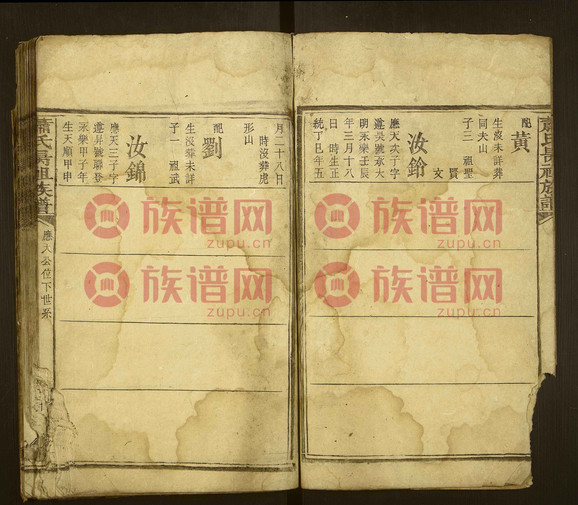 配黄
生沒未詳葬
同夫山
子三 祖聖
賢
文
汝鈴
應天次子字
遵吴號京大
明永樂壬辰
年三月十八
日 時生正
統丁巳年五
月二十八日
時沒葬虎
形山
配劉
生沒葬未詳
子一 祖武
汝錦
應天三子字
遵昇號聯登
永樂甲子年
生天順甲申
蕭氏
祖族譜
應天公位下世系
族谱网
zupu.cn
族谱网
zupu.cn
族谱网
zupu.cn
族谱网
zupu.cn